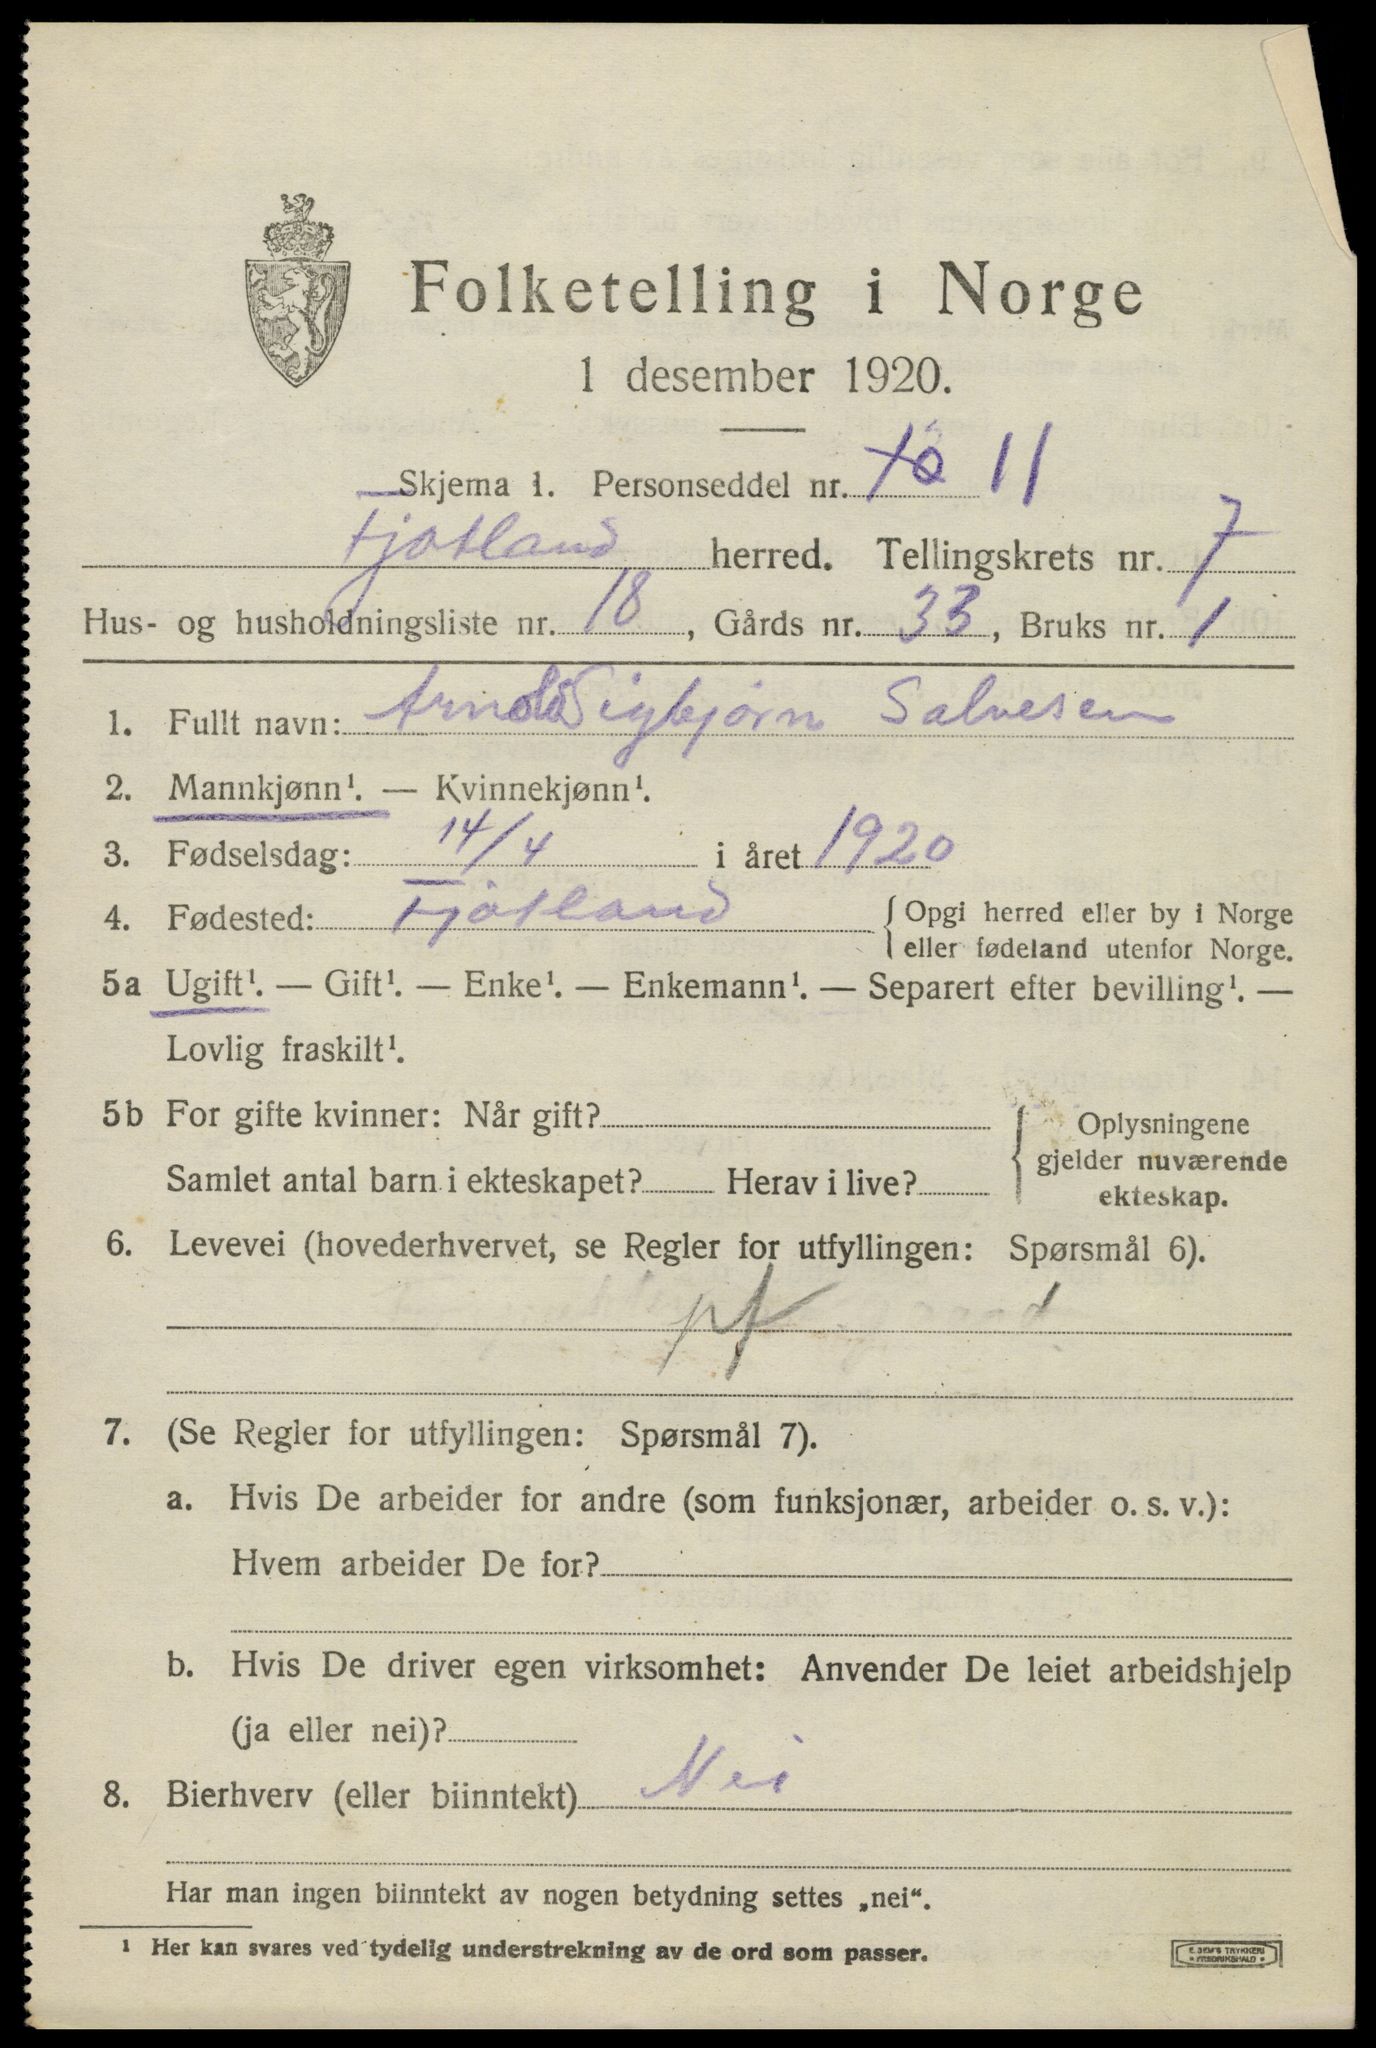 Folketelling i Norge
1 desember 1920.
Skjema 1. Personseddel nr. 10 11
Fjotland herred. Tellingskrets nr. 7
Hus- og husholdningsliste nr. 18, Gårds nr. 33, Bruks nr. 1
1. Fullt navn: Arnold Sigbjørn Salvesen
2. Mannkjønn¹. — Kvinnekjønn¹.
3. Fødselsdag: 14/4 i året 1920
4. Fødested: Fjotland { Opgi herred eller by i Norge
eller fødeland utenfor Norge.
5a Ugift¹. — Gift¹. — Enke¹. — Enkemann¹. — Separert efter bevilling¹. —
Lovlig fraskilt¹.
5b For gifte kvinner: Når gift?
Samlet antal barn i ekteskapet? Herav i live?
Oplysningene
gjelder nuværende
ekteskap.
6. Levevei (hovederhvervet, se Regler for utfyllingen: Spørsmål 6).
7. (Se Regler for utfyllingen: Spørsmål 7).
a. Hvis De arbeider for andre (som funksjonær, arbeider o. s. v.):
Hvem arbeider De for?
b. Hvis De driver egen virksomhet: Anvender De leiet arbeidshjelp
(ja eller nei)?
8. Bierhverv (eller biinntekt) Nei
Har man ingen biinntekt av nogen betydning settes „nei“.
¹ Her kan svares ved tydelig understrekning av de ord som passer.
E. SEM'S TRYKKERI
FREDRIKSHALD